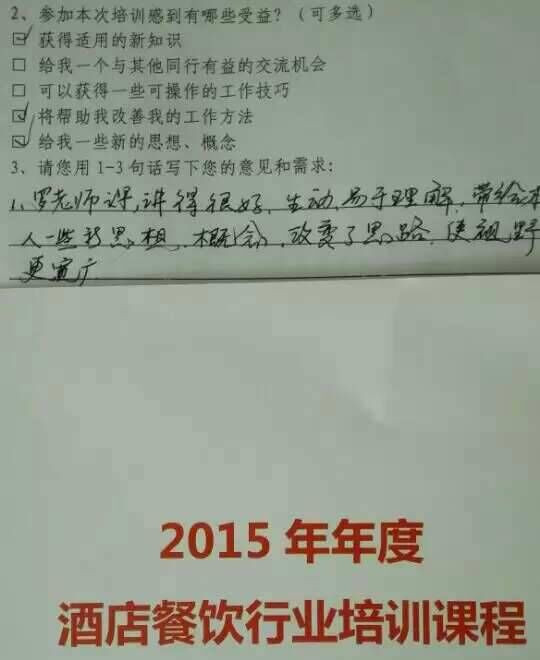 2、参加本次培训感到有哪些受益？（可多选）
☑ 获得适用的新知识
□ 给我一个与其他同行有益的交流机会
□ 可以获得一些可操作的工作技巧
☑ 将帮助我改善我的工作方法
☑ 给我一些新的思想、概念
3、请您用1-3句话写下您的意见和需求：
1、罗老师课，讲得很好，生动，易于理解，带给本
人一些新思想，概念，改变了思路，使视野
更宽广
2015年年度
酒店餐饮行业培训课程